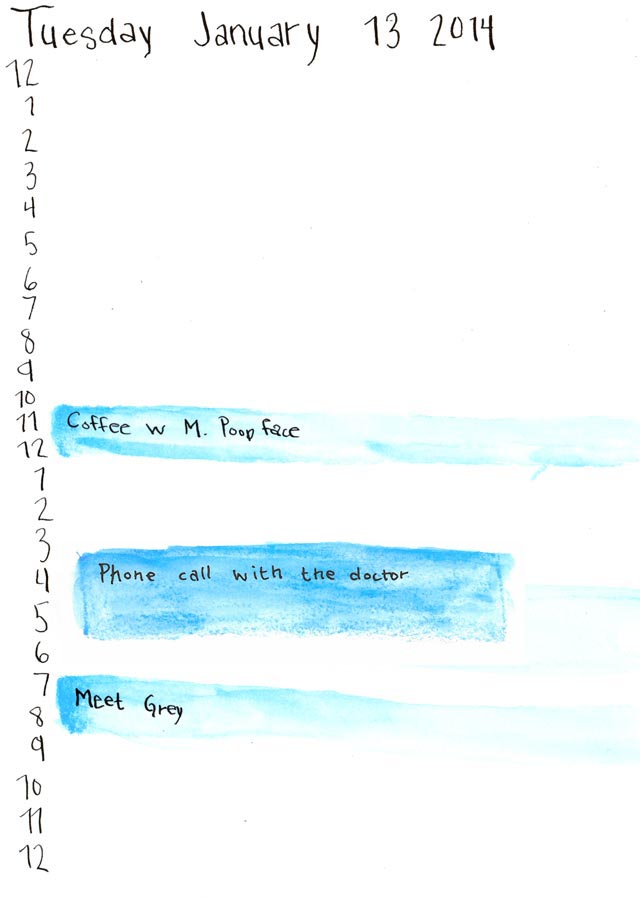 Tuesday January 13 2014
12
1
2
3
4
5
6
7
8
9
10
11 Coffee w M. Poop face
12
1
2
3
4 Phone call with the doctor
5
6
7 Meet Grey
8
9
10
11
12